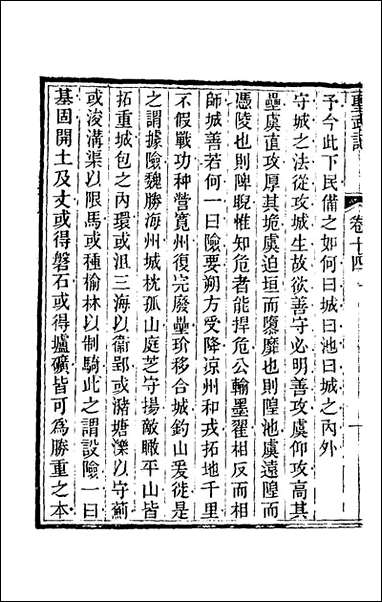 聖武記
卷十四
予今此下民備之如何曰城曰池曰城之內外
守城之法從攻城生故欲善守必明善攻虞仰攻高其
壘虞直攻厚其垝虞迫垣而隳靡也則隍池虞遠隍而
憑陵也則陴睨惟知危者能捍危公輸墨翟相反而相
師城善若何一曰險要朔方受降涼州和戎拓地千里
不假戰功种營寬州復完廢壘玠移合城釣山爰徙是
之謂據險魏勝海州城枕孤山庭芝守揚敵瞰平山皆
拓重城包之內環或沮三海以衞郢或瀦塘濼以守薊
或浚溝渠以限馬或種榆林以制騎此之謂設險一曰
基固開土及丈或得磐石或得壚礦皆可為勝重之本